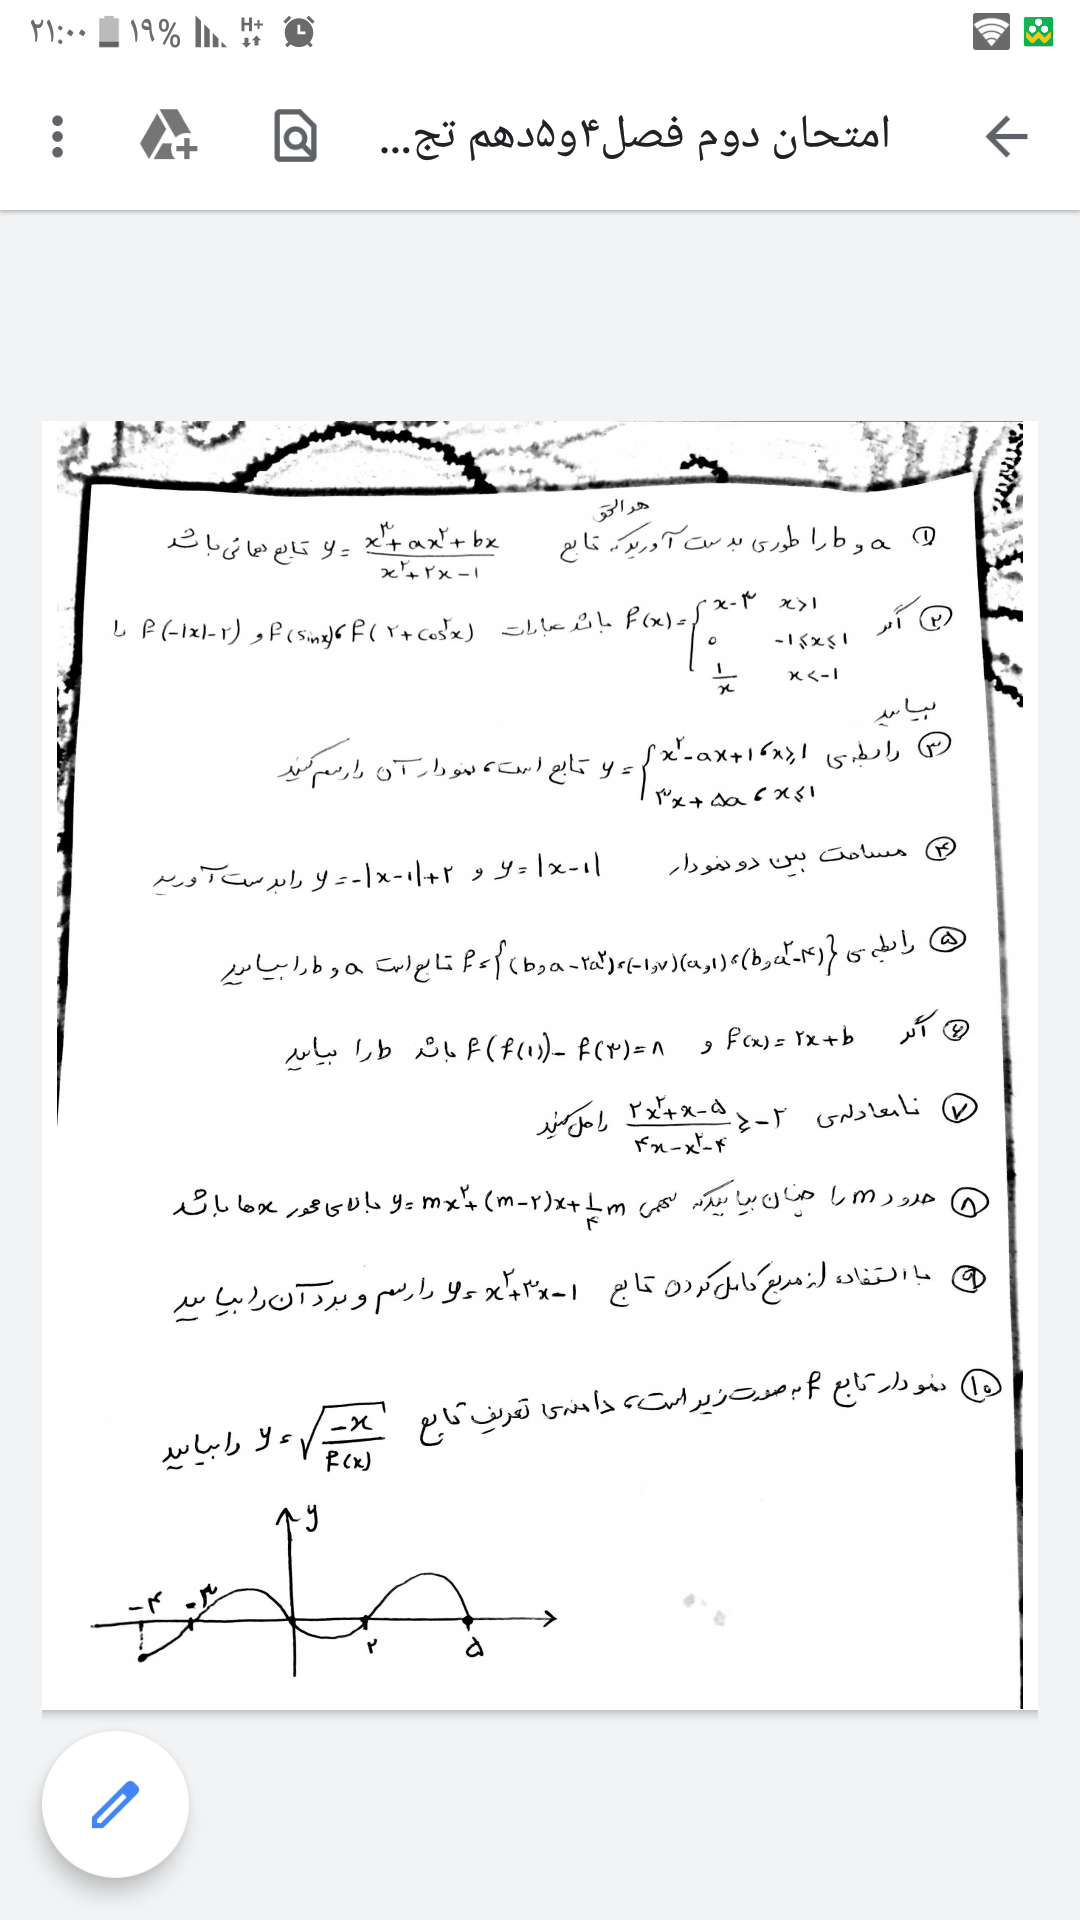 ۲۱:۰۰ ۱۹% H+
امتحان دوم فصل۴و۵دهم تج...
هدالحق
① a و b را طوری بدست آورید که تابع y = (x³+ax²+bx)/(x²+۲x-۱) تابع همانی باشد
② اگر f(x)={x-۳ x>۱ ; ۰ -۱≤x≤۱ ; ۱/x x<-۱ باشد عبارات f(۲+cos²x) ، f(sinx) و f(-|x|-۲) را
بیابید
③ رابطه‌ی y={x²-ax+۱ ، x≥۱ ; ۳x+۵a ، x≤۱ تابع است، نمودار آن را رسم کنید
④ مساحت بین دو نمودار y=|x-۱| و y=-|x-۱|+۲ را بدست آورید
⑤ رابطه‌ی f={(b,a-۲a²),(-۱,۷)(a,۱),(b,a²-۴)} تابع است a و b را بیابید
⑥ اگر f(x)=۲x+b و f(f(۱))-f(۳)=۸ باشد b را بیابید
⑦ نامعادله‌ی (۲x²+x-۵)/(۴x-x²-۴) ≥ -۲ را حل کنید
⑧ حدود m را چنان بیابید که سهمی y=mx²+(m-۲)x+¼m بالای محور xها باشد
⑨ با استفاده از مربع کامل کردن تابع y=x²+۳x-۱ را رسم و برد آن را بیابید
⑩ نمودار تابع f به صورت زیر است، دامنه‌ی تعریف تابع y=√(-x/f(x)) را بیابید
y
-۴ -۳ ۲ ۵